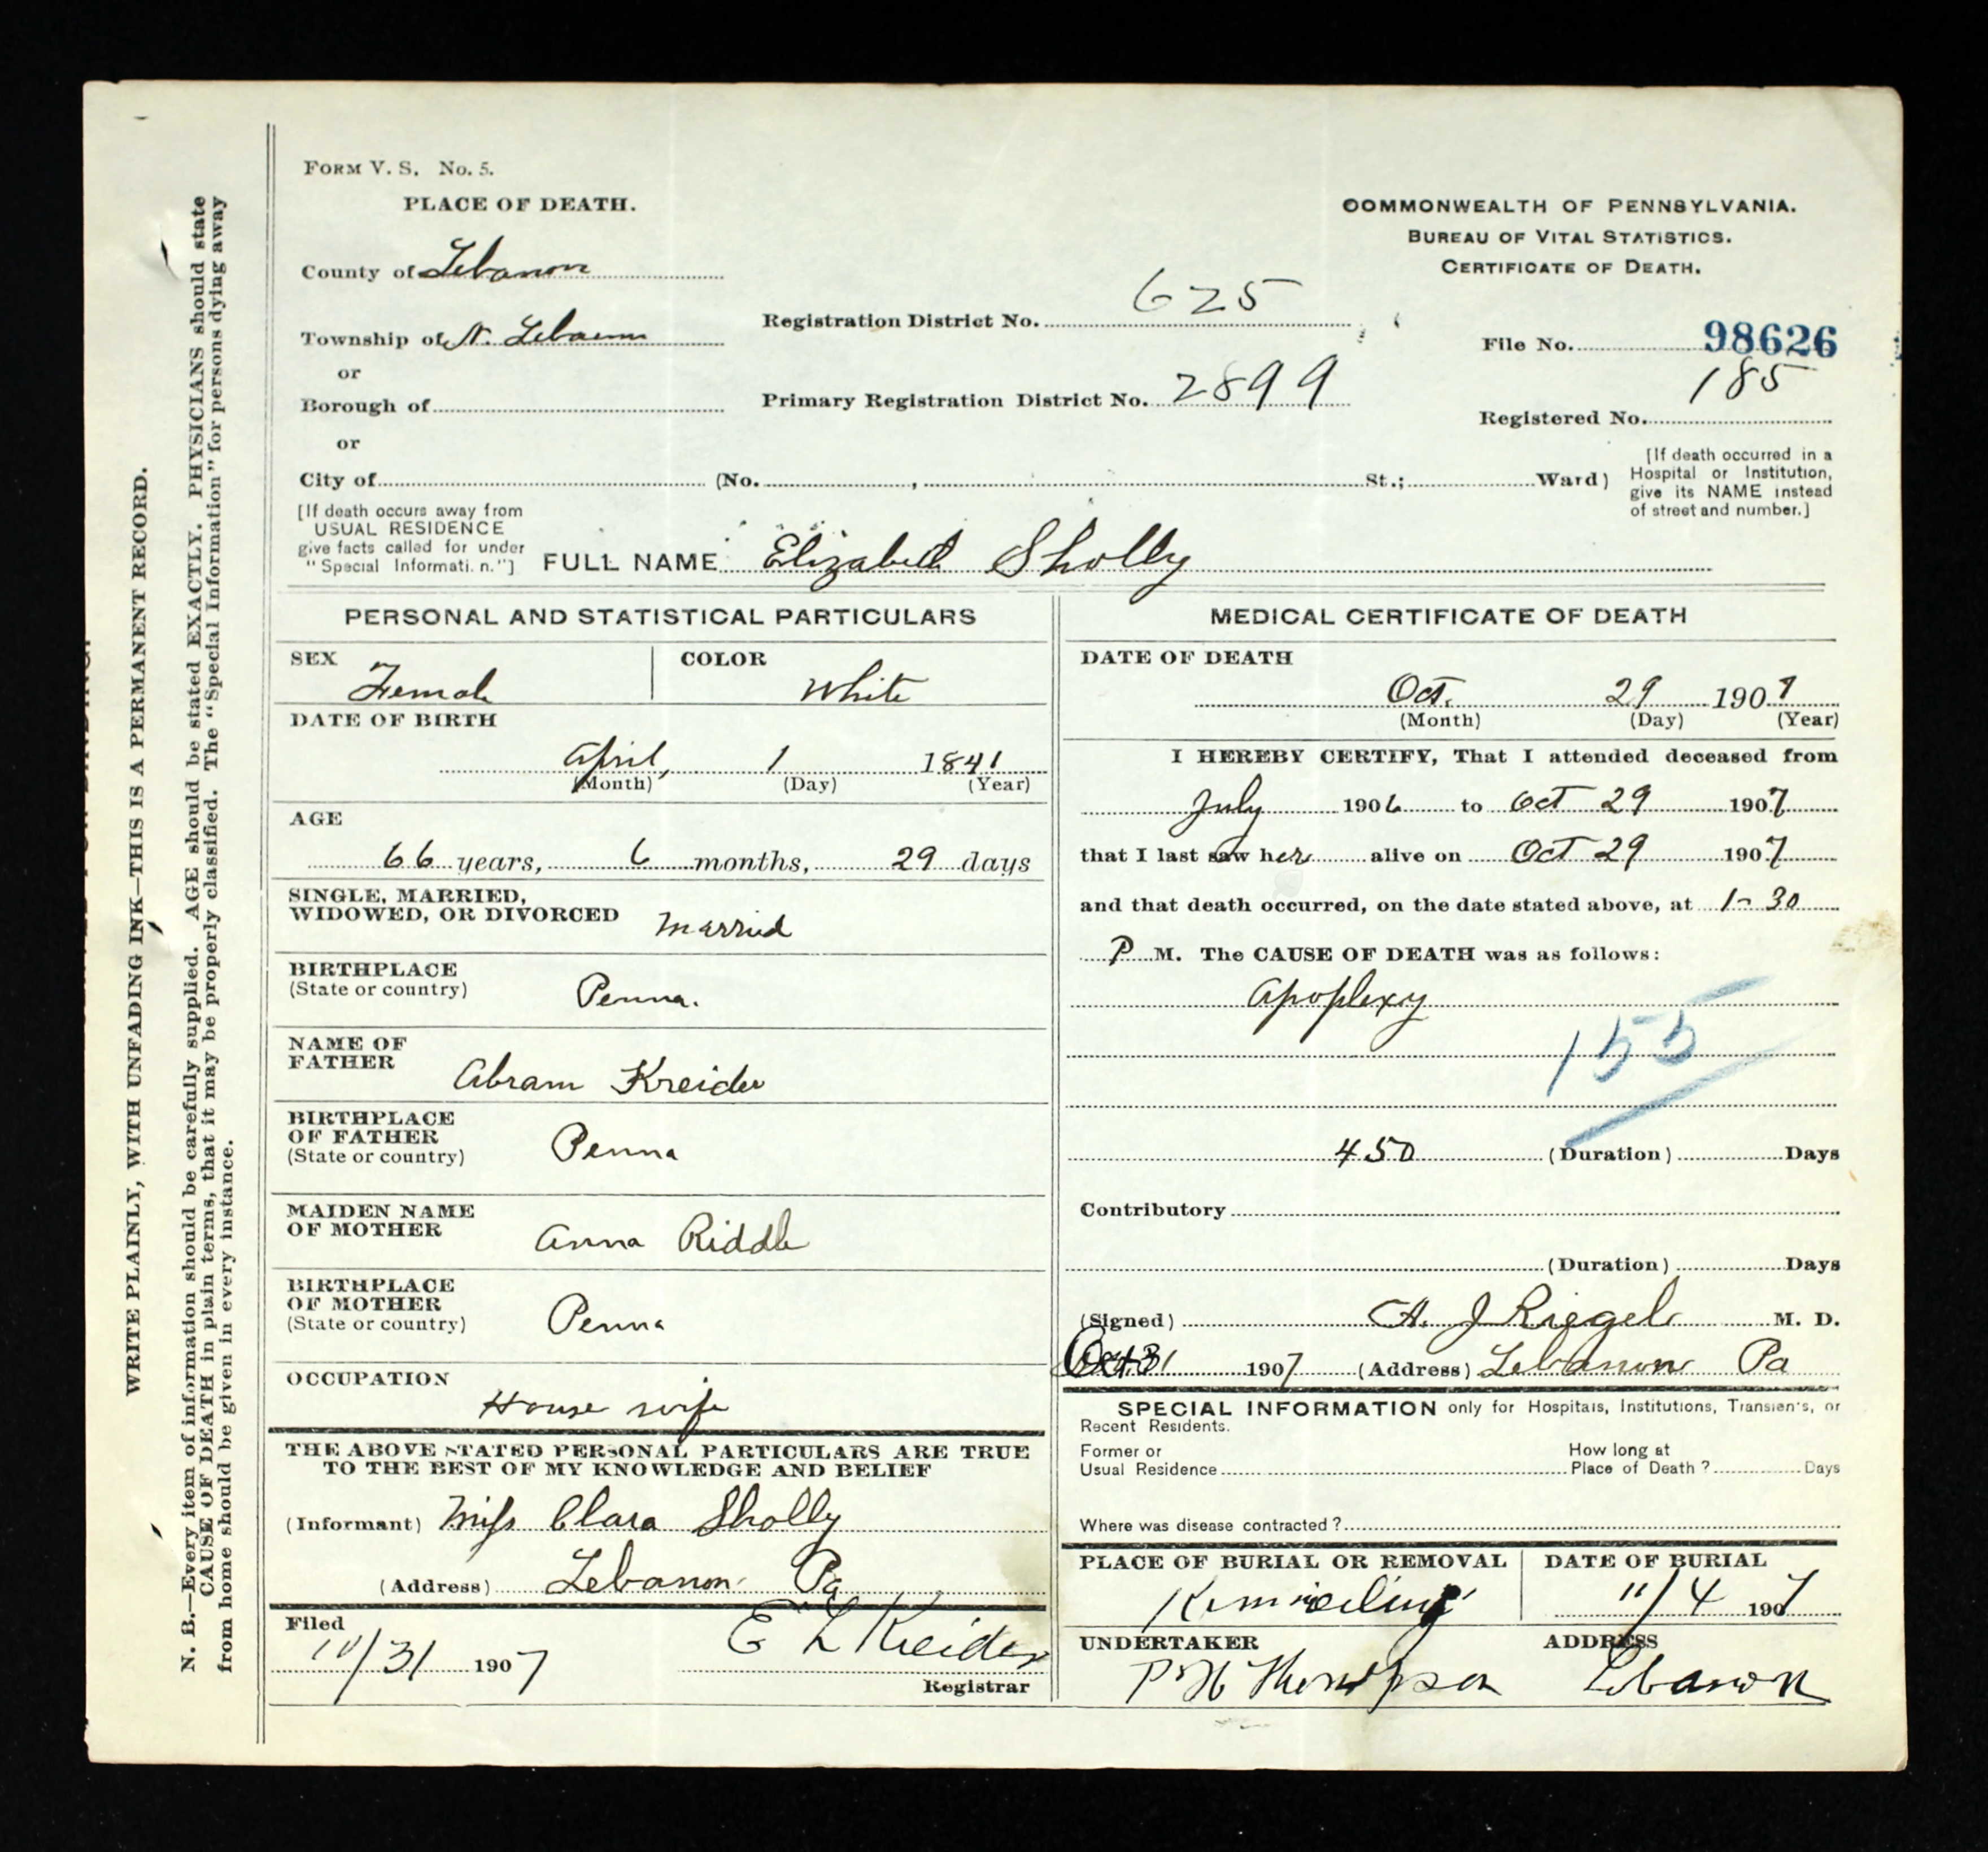 FORM V. S. No. 5.
PLACE OF DEATH.
COMMONWEALTH OF PENNSYLVANIA.
BUREAU OF VITAL STATISTICS.
CERTIFICATE OF DEATH.
County of Lebanon
Township of N. Lebanon
or
Borough of
or
City of (No. , St.; Ward)
Registration District No. 625
Primary Registration District No. 2899
File No. 98626
Registered No. 185
[If death occurred in a
Hospital or Institution,
give its NAME instead
of street and number.]
[If death occurs away from
USUAL RESIDENCE
give facts called for under
"Special Informati. n."]
FULL NAME Elizabeth Sholly
PERSONAL AND STATISTICAL PARTICULARS
SEX Female
COLOR White
DATE OF BIRTH
April, 1 1841
(Month) (Day) (Year)
AGE
66 years, 6 months, 29 days
SINGLE, MARRIED,
WIDOWED, OR DIVORCED Married
BIRTHPLACE
(State or country) Penna.
NAME OF
FATHER Abram Kreider
BIRTHPLACE
OF FATHER
(State or country) Penna
MAIDEN NAME
OF MOTHER Anna Riddle
BIRTHPLACE
OF MOTHER
(State or country) Penna
OCCUPATION
House wife
THE ABOVE STATED PERSONAL PARTICULARS ARE TRUE
TO THE BEST OF MY KNOWLEDGE AND BELIEF
(Informant) Miss Clara Sholly
(Address) Lebanon Pa
Filed
10/31 1907 E L Kreider
Registrar
MEDICAL CERTIFICATE OF DEATH
DATE OF DEATH
Oct. 29 1907
(Month) (Day) (Year)
I HEREBY CERTIFY, That I attended deceased from
July 1906 to Oct 29 1907
that I last saw her alive on Oct 29 1907
and that death occurred, on the date stated above, at 1-30
P M. The CAUSE OF DEATH was as follows:
Apoplexy
155
450 (Duration) Days
Contributory
(Duration) Days
(Signed) A. J Riegel M. D.
Oct 31 1907 (Address) Lebanon Pa
SPECIAL INFORMATION only for Hospitals, Institutions, Transients, or
Recent Residents.
Former or
Usual Residence
How long at
Place of Death? Days
Where was disease contracted?
PLACE OF BURIAL OR REMOVAL
Kimmerlings
DATE OF BURIAL
11/4 1907
UNDERTAKER
P H Thompson
ADDRESS
Lebanon
WRITE PLAINLY, WITH UNFADING INK—THIS IS A PERMANENT RECORD.
N. B.—Every item of information should be carefully supplied. AGE should be stated EXACTLY. PHYSICIANS should state
CAUSE OF DEATH in plain terms, that it may be properly classified. The "Special Information" for persons dying away
from home should be given in every instance.